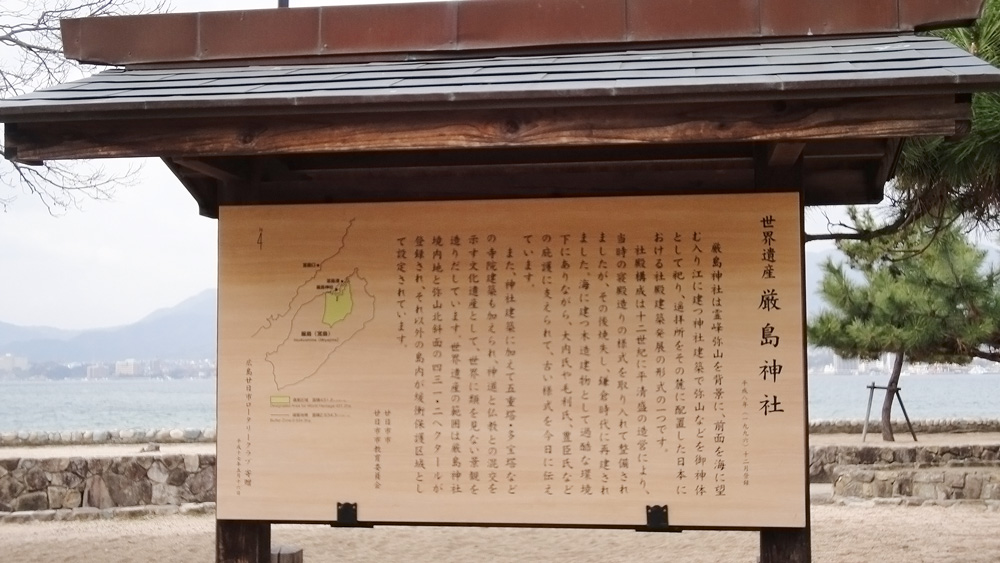 世界遺産 厳島神社
平成八年(一九九六)十二月登録
厳島神社は霊峰弥山を背景に、前面を海に望
む入り江に建つ神社建築で弥山などを御神体
として祀り、遥拝所をその麓に配置した日本に
おける社殿建築発展の形式の一つです。
社殿構成は十二世紀に平清盛の造営により、
当時の寝殿造りの様式を取り入れて整備され
ましたが、その後焼失し、鎌倉時代に再建され
ました。海に建つ木造建物として過酷な環境
下にありながら、大内氏や毛利氏、豊臣氏など
の庇護に支えられて、古い様式を今日に伝え
ています。
また、神社建築に加えて五重塔・多宝塔など
の寺院建築も加えられ、神道と仏教との混交を
示す文化遺産として、世界に類を見ない景観を
造りだしています。世界遺産の範囲は厳島神社
境内地と弥山北斜面の四三一・二ヘクタールが
登録され、それ以外の島内が緩衝保護区域とし
て設定されています。
廿日市市
廿日市市教育委員会
厳島(宮島)
広島廿日市ロータリークラブ 寄贈